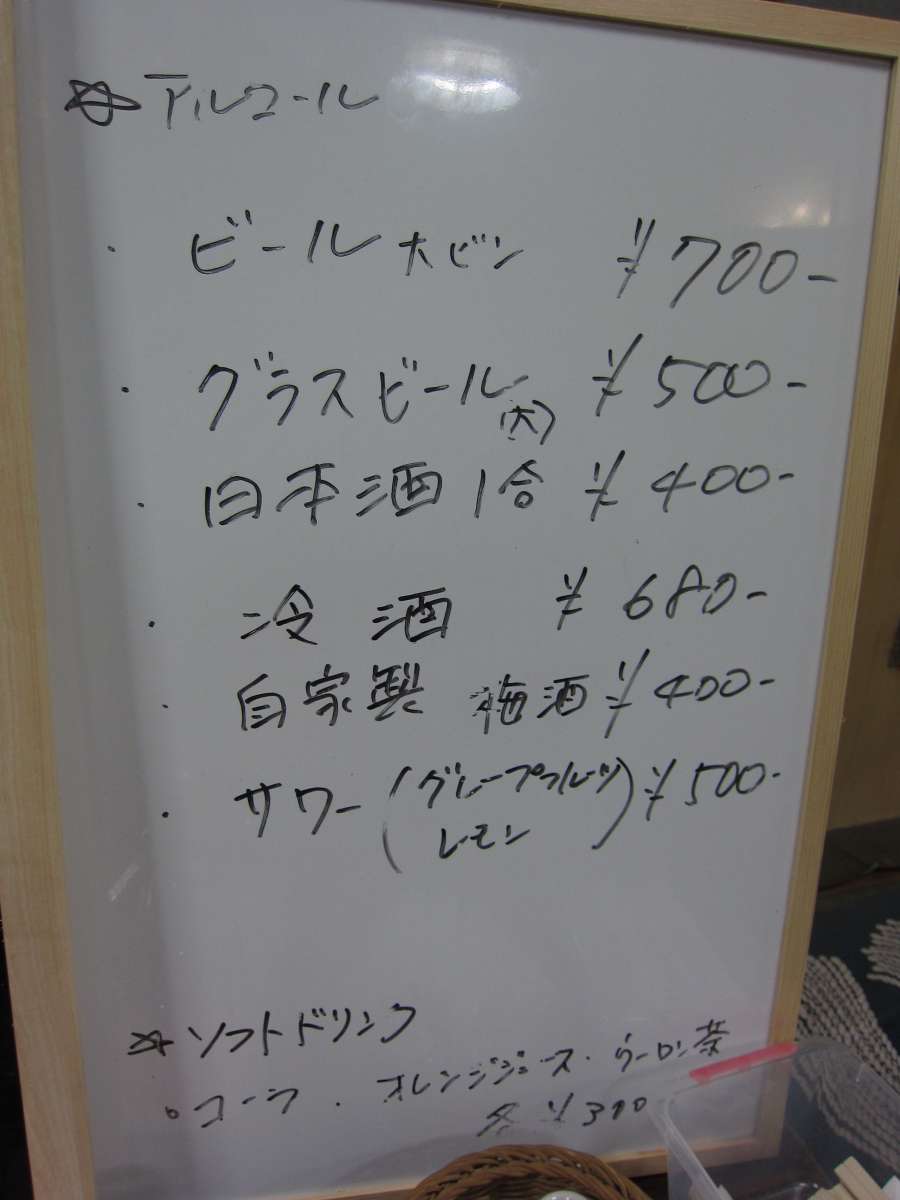 ☆アルコール
・ビール 大ビン ¥700-
・グラスビール(大) ¥500-
・日本酒1合 ¥400-
・冷酒 ¥680-
・自家製 梅酒 ¥400-
・サワー(グレープフルーツ ¥500-
レモン)
☆ソフトドリンク
・コーラ・オレンジジュース・ウーロン茶
各¥300